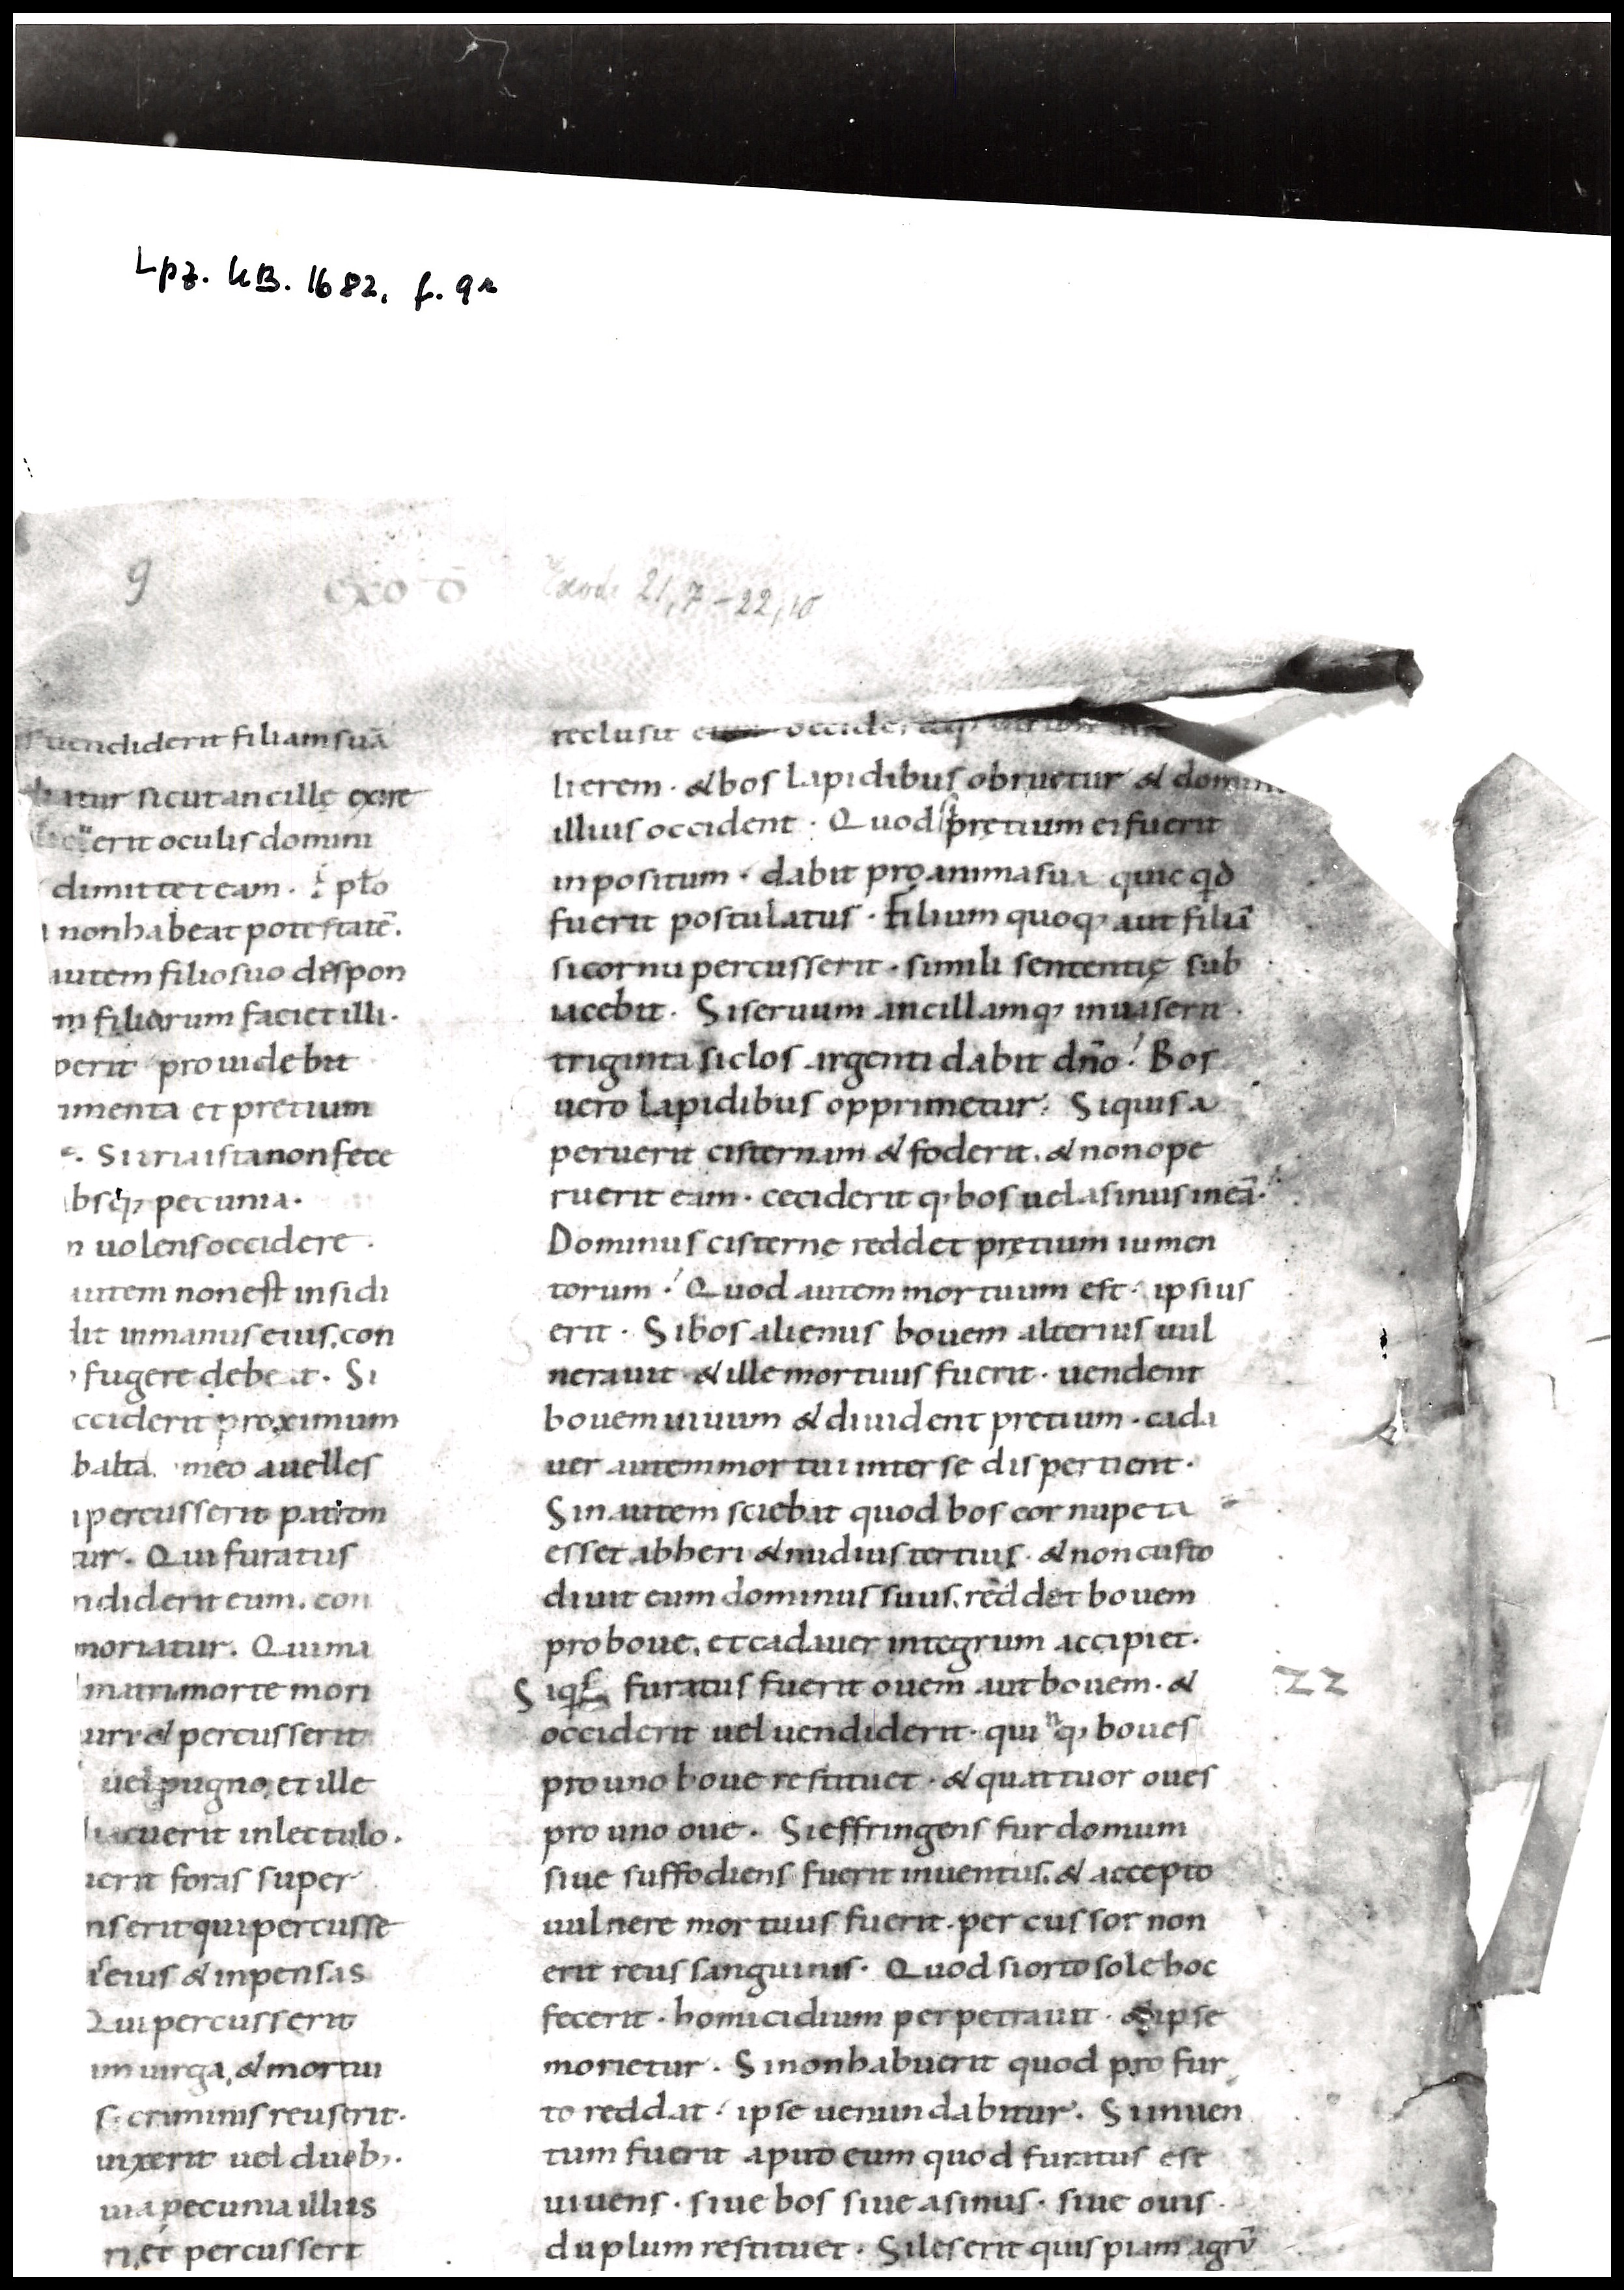 Lpz. UB. 1682, f. 9r
9 exo Exod. 21,7-22,10
uendiderit filiam suā
sicut ancillę exire
erit oculis domini
dimittet eam.
non habeat potestatē.
autem filio suo despon
m filiarum faciet illi.
perit prouidebit
imenta et pretium
Si tria ista non fece
bsq; pecunia.
n uolens occidere.
autem non est insidi
dit in manus eius. con
fugere debeat. Si
cciderit proximum
meo auelles
percusserit patrem
tur. Qui furatus
ndiderit eum. con
moriatur. Qui ma
matri morte mori
& percusserit
uel pugno, et ille
iacuerit in lectulo.
ierit foras super
ns erit qui percusse
eius & inpensas
Qui percusserit
in uirga, & mortui
criminis reus erit.
uixerit uel dueb;.
uia pecunia illius
ri, et percusserit
reclusit
lierem. & bos lapidibus obruetur & domin
illius occident. Quod si pretium ei fuerit
inpositum. dabit pro anima sua qd
fuerit postulatus. Filium quoq; aut filiā
si cornu percusserit. simili sententię sub
iacebit. Si seruum ancillamq; inuaserit.
triginta siclos argenti dabit dn̄o. Bos
uero lapidibus opprimetur. Si quis a
peruerit cisternam & foderit. & non ope
ruerit eam. cecideritq; bos uel asinus in eā.
Dominus cisternę reddet pretium iumen
torum. Quod autem mortuum est. ipsius
erit. Si bos alienus bouem alterius uul
nerauit & ille mortuus fuerit. uendent
bouem uiuum & diuident pretium. cada
uer autem mortui inter se dispertient.
Sin autem sciebat quod bos cornupeta
esset ab heri & nudius tertius. & non custo
diuit eum dominus suus. reddet bouem
pro boue. et cadauer integrum accipiet.
Siqs furatus fuerit ouem aut bouem. & 22
occiderit uel uendiderit. quinq; boues
pro uno boue restituet. & quattuor oues
pro uno oue. Si effringens fur domum
siue suffodiens fuerit inuentus. & accepto
uulnere mortuus fuerit. percussor non
erit reus sanguinis. Quod si orto sole hoc
fecerit. homicidium perpetrauit. & ipse
morietur. Si non habuerit quod pro fur
to reddat. ipse uenundabitur. Si inuen
tum fuerit aput eum quod furatus est
uiuens. siue bos siue asinus. siue ouis.
duplum restituet. Si leserit quispiam agrū